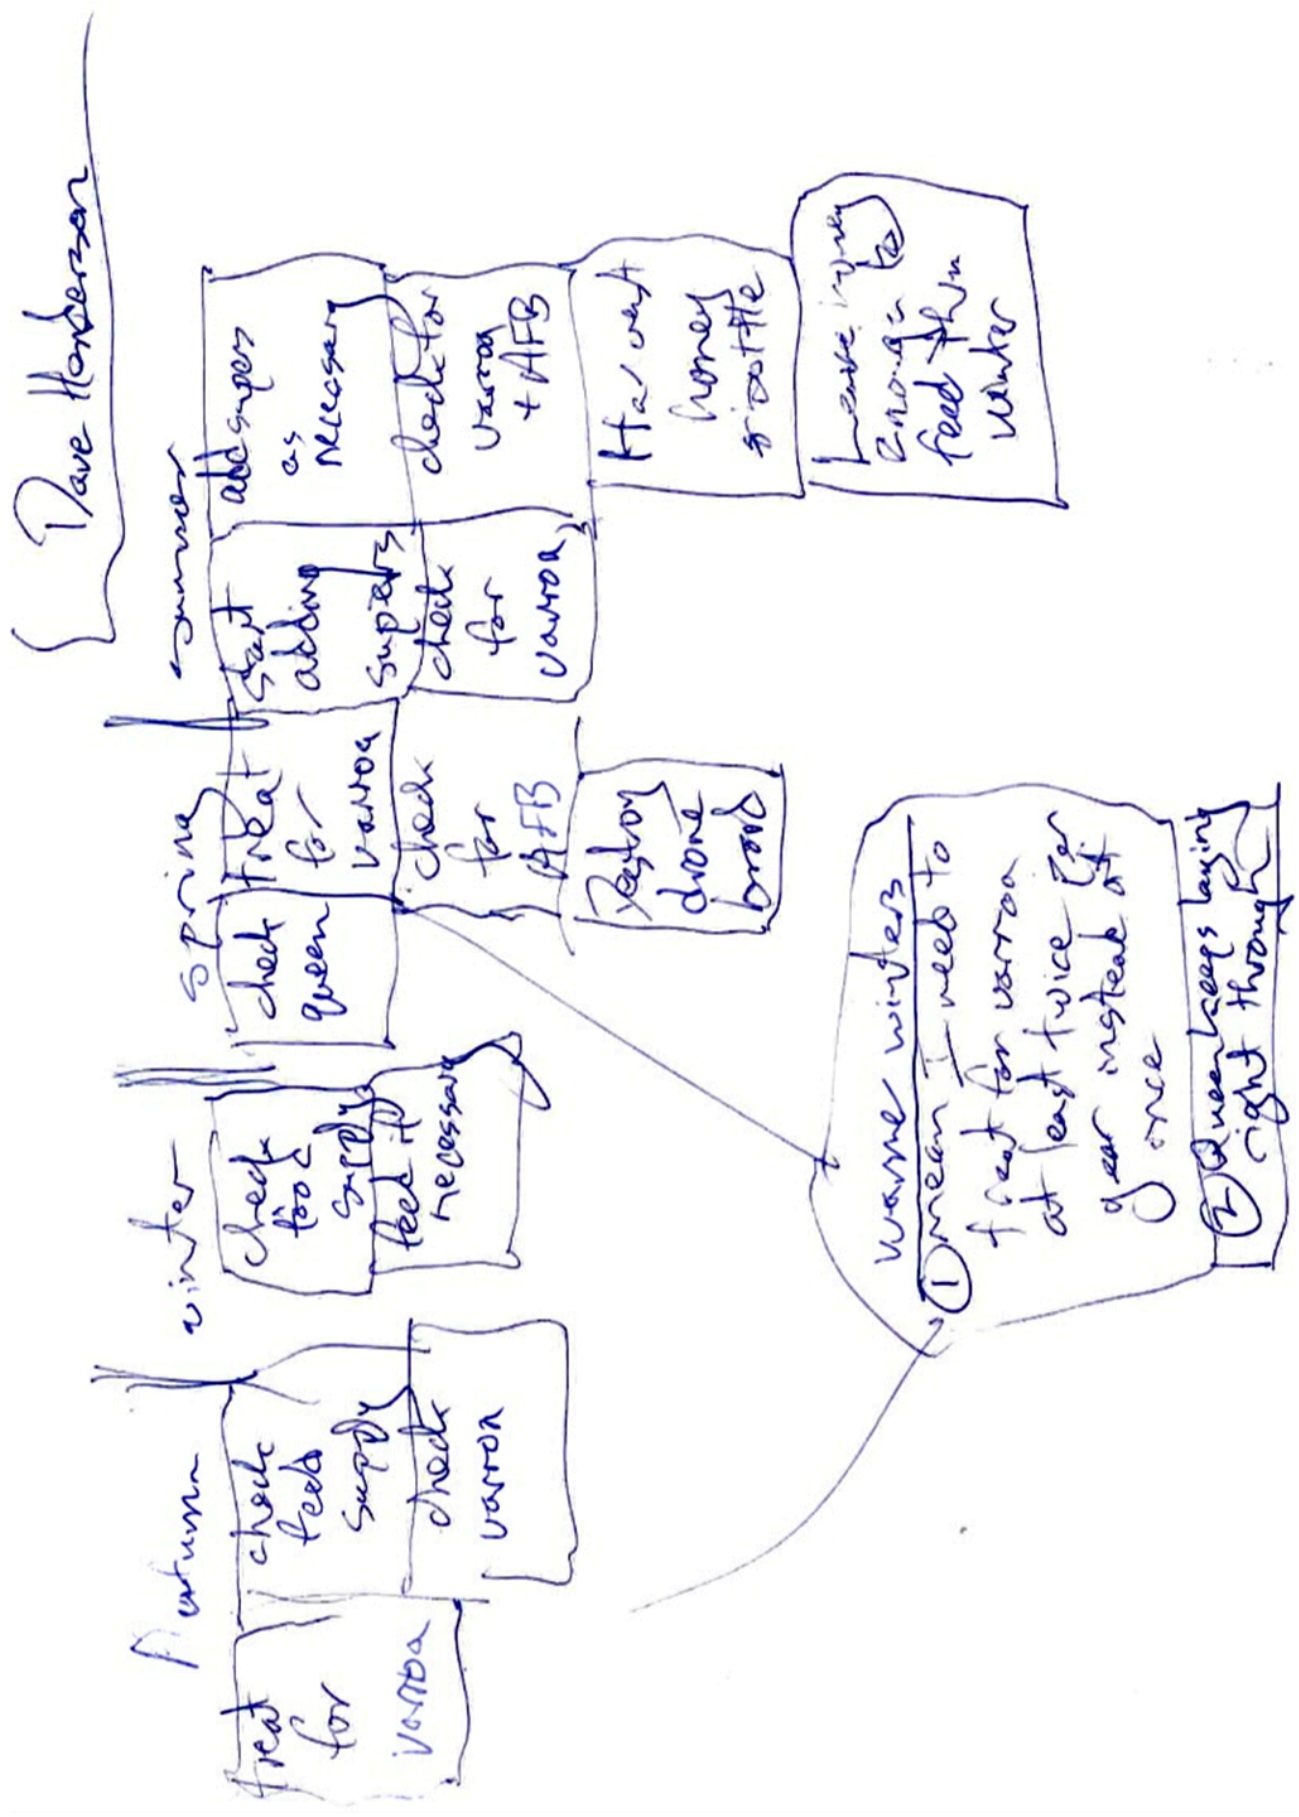 Dave Henderson
Autumn
winter
spring
summer
treat
for
varroa
check
feed
supply
check
varroa
check
food
supply
feed if
necessary
check
queen
treat
for
varroa
check
for
AFB
Destroy
drone
brood
start
adding
supers
check
for
varroa
add supers
as
necessary
check for
varroa
+ AFB
Harvest
honey
Leave honey
enough to
feed thru
winter
warme winters
① mean I need to
treat for varroa
at least twice per
year instead of
once
② Queen keeps laying
right through